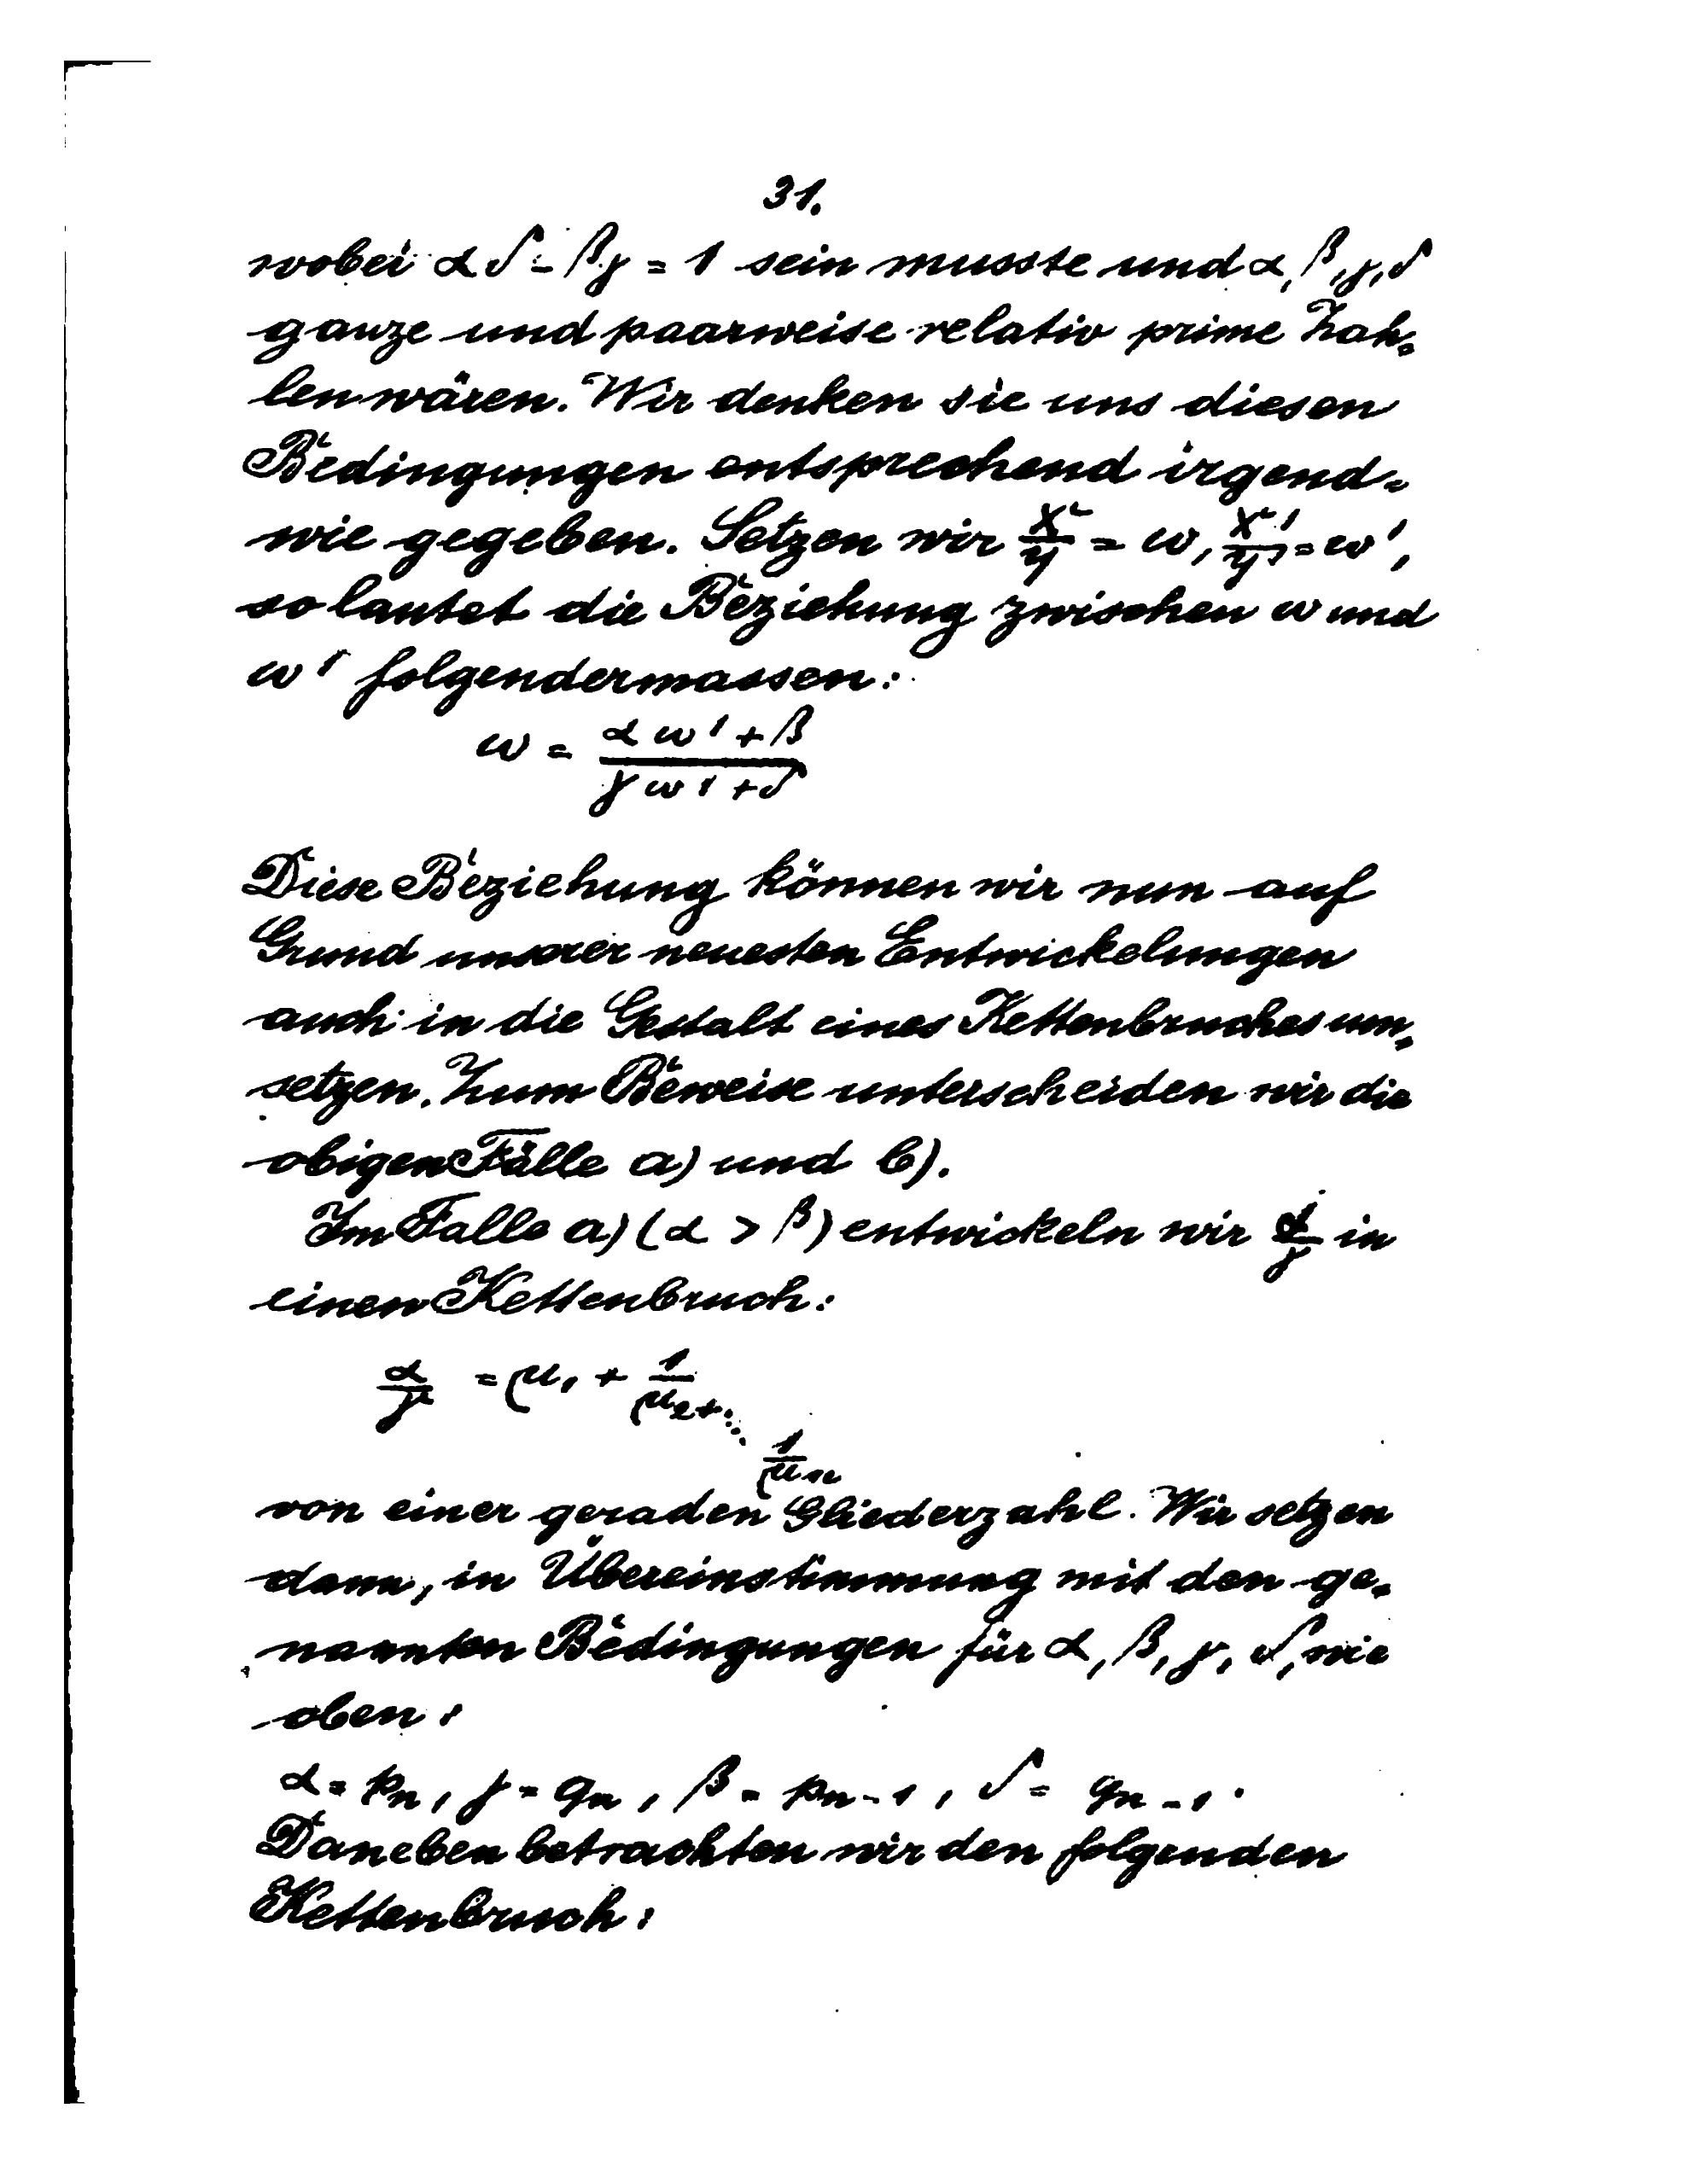 31.
wobei αδ - βγ = 1 sein musste und α, β, γ, δ
ganze und paarweise relativ prime Zah-
len wären. Wir denken sie uns diesen
Bedingungen entsprechend irgend-
wie gegeben. Setzen wir x/y = ω, x'/y' = ω',
so lautet die Beziehung zwischen ω und
ω' folgendermassen:
ω = (α ω' + β)/(γ ω' + δ)
Diese Beziehung können wir nun auf
Grund unserer neuesten Entwickelungen
auch in die Gestalt eines Kettenbruches um-
setzen. Zum Beweise unterscheiden wir die
obigen Fälle a) und b).
Im Falle a) (α > β) entwickeln wir α/γ in
einen Kettenbruch:
α/γ = μ₁ + 1/μ₂ + ⋱ 1/μₙ
von einer geraden Gliederzahl. Wir setzen
dann, in Übereinstimmung mit den ge-
nannten Bedingungen für α, β, γ, δ, wie
oben:
α = pₙ, γ = qₙ, β = pₙ₋₁, δ = qₙ₋₁.
Daneben betrachten wir den folgenden
Kettenbruch: